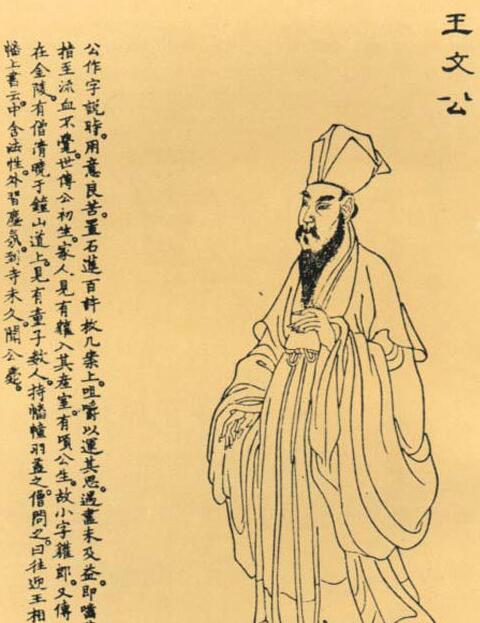 王文公
公作字說時。用意良苦。置石蓮百許枚几案上咀嚼以運其思。遇盡未及益。即嚙
指至流血不覺。世傳公初生。家人見有貛入其產室。有頃公生。故小字貛郎。又傳
在金陵有僧清曉于鐘山道上。見有童子數人。持幡幢羽蓋之。僧問之曰往迎王相
幡上書云。中含法性。外習塵氛。到寺未久。聞公薨。